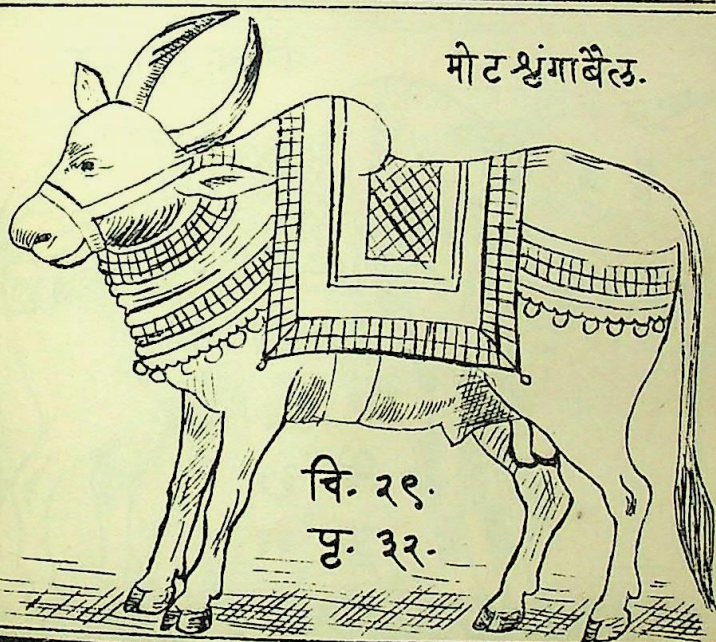 मोटशृंगाबैल.
चि. २९.
पृ. ३२.